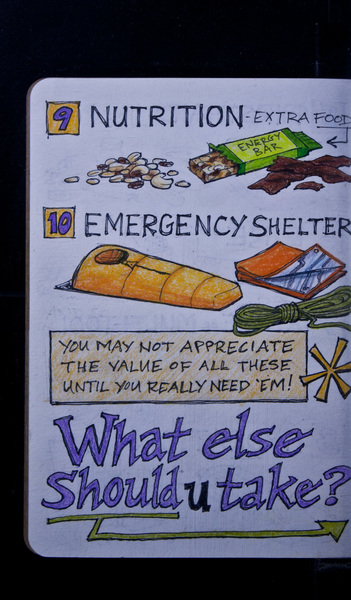 9 NUTRITION - EXTRA FOOD
ENERGY
BAR
10 EMERGENCY SHELTER
YOU MAY NOT APPRECIATE
THE VALUE OF ALL THESE
UNTIL YOU REALLY NEED 'EM!
What else
Should u take?